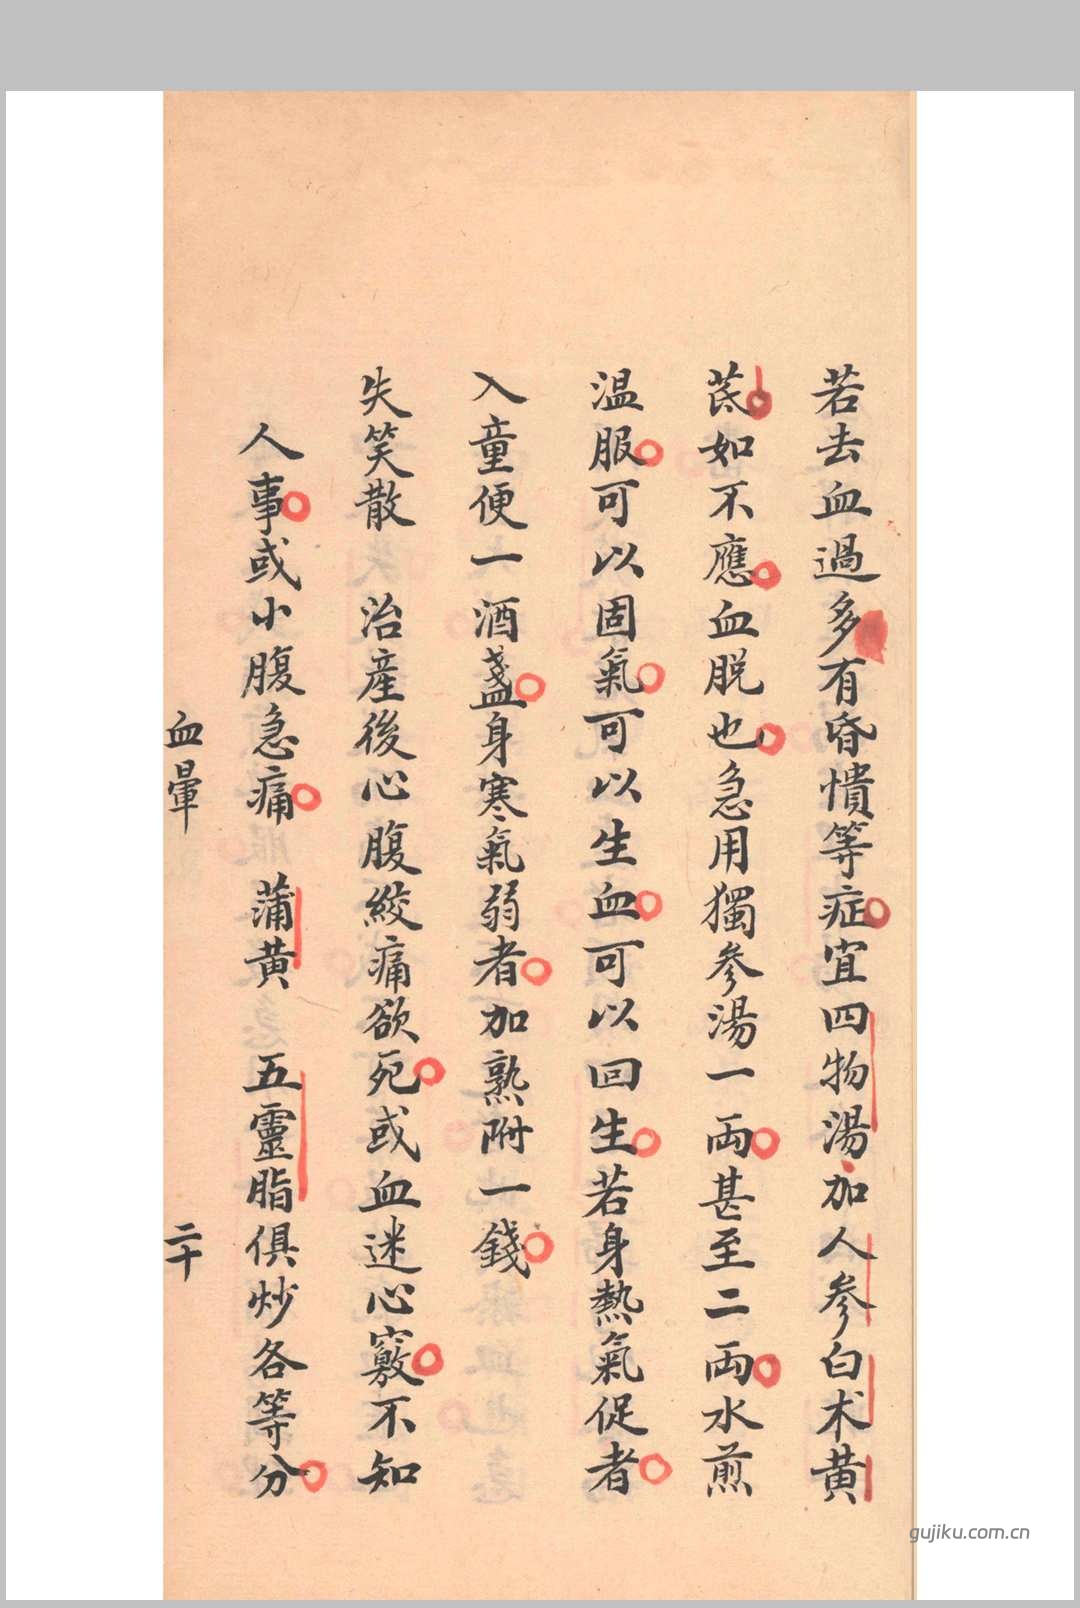 若去血過多有昏憒等症宜四物湯加人参白术黄
芪如不應血脱也急用獨参湯一両甚至二両水煎
温服可以固氣可以生血可以回生若身熱氣促者
入童便一酒盞身寒氣弱者加熟附一錢
失笑散　治産後心腹絞痛欲死或血迷心竅不知
人事或小腹急痛　蒲黄　五靈脂俱炒各等分
血暈　二十
gujiku.com.cn